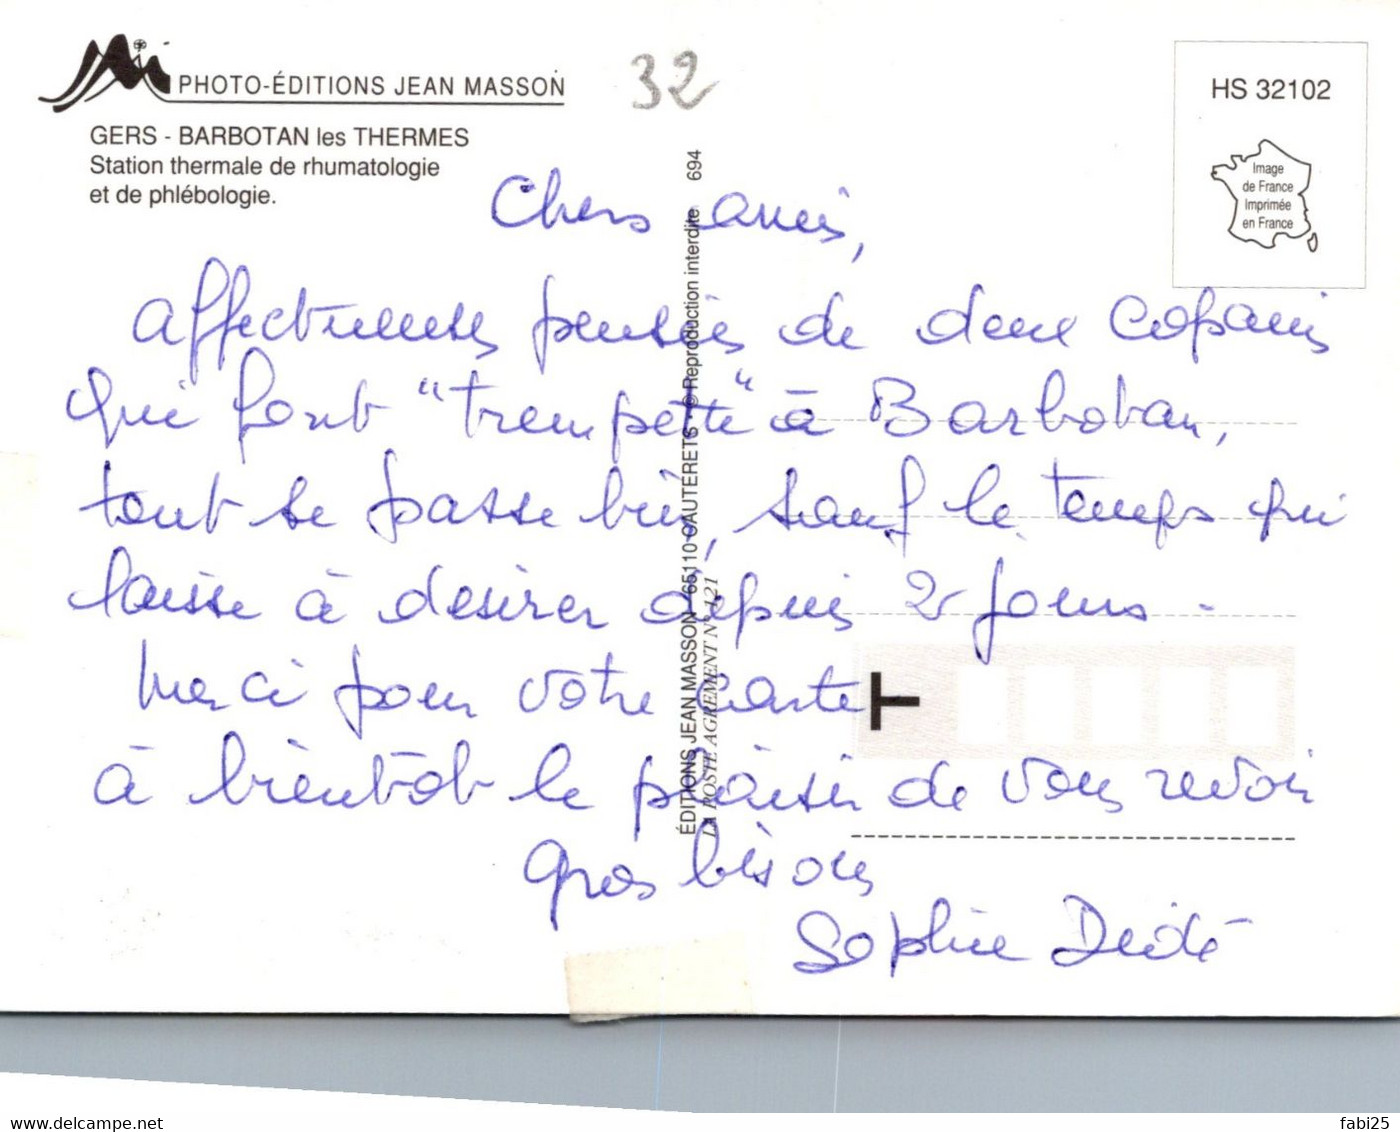 PHOTO-ÉDITIONS JEAN MASSON
32
HS 32102
GERS - BARBOTAN les THERMES
Station thermale de rhumatologie
et de phlébologie.
Image
de France
Imprimée
en France
Chers amis,
affectueuses pensées de deux copains
qui font "trempette" à Barbotan,
tout se passe bien, sauf le temps qui
laisse à désirer depuis 2 jours.
Merci pour votre carte
à bientôt le plaisir de vous revoir
Gros bisous
Sophie Dédé
ÉDITIONS JEAN MASSON - 65110 CAUTERETS - © Reproduction interdite 694
LA POSTE AGREMENT N° 421
T
www.delcampe.net
fabi25